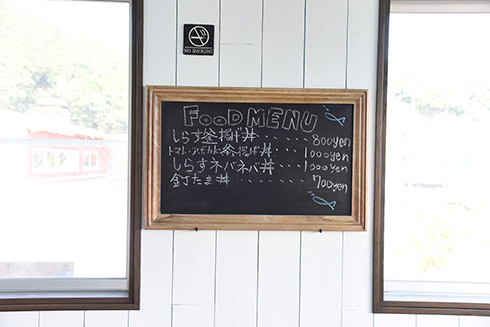 NO SMOKING
FOOD MENU
しらす釜揚げ丼‥‥ 800yen
トマト・アボカド・釜揚げ丼‥‥ 1000yen
しらすネバネバ丼‥‥ 1000yen
釜たま丼‥‥‥ 700yen